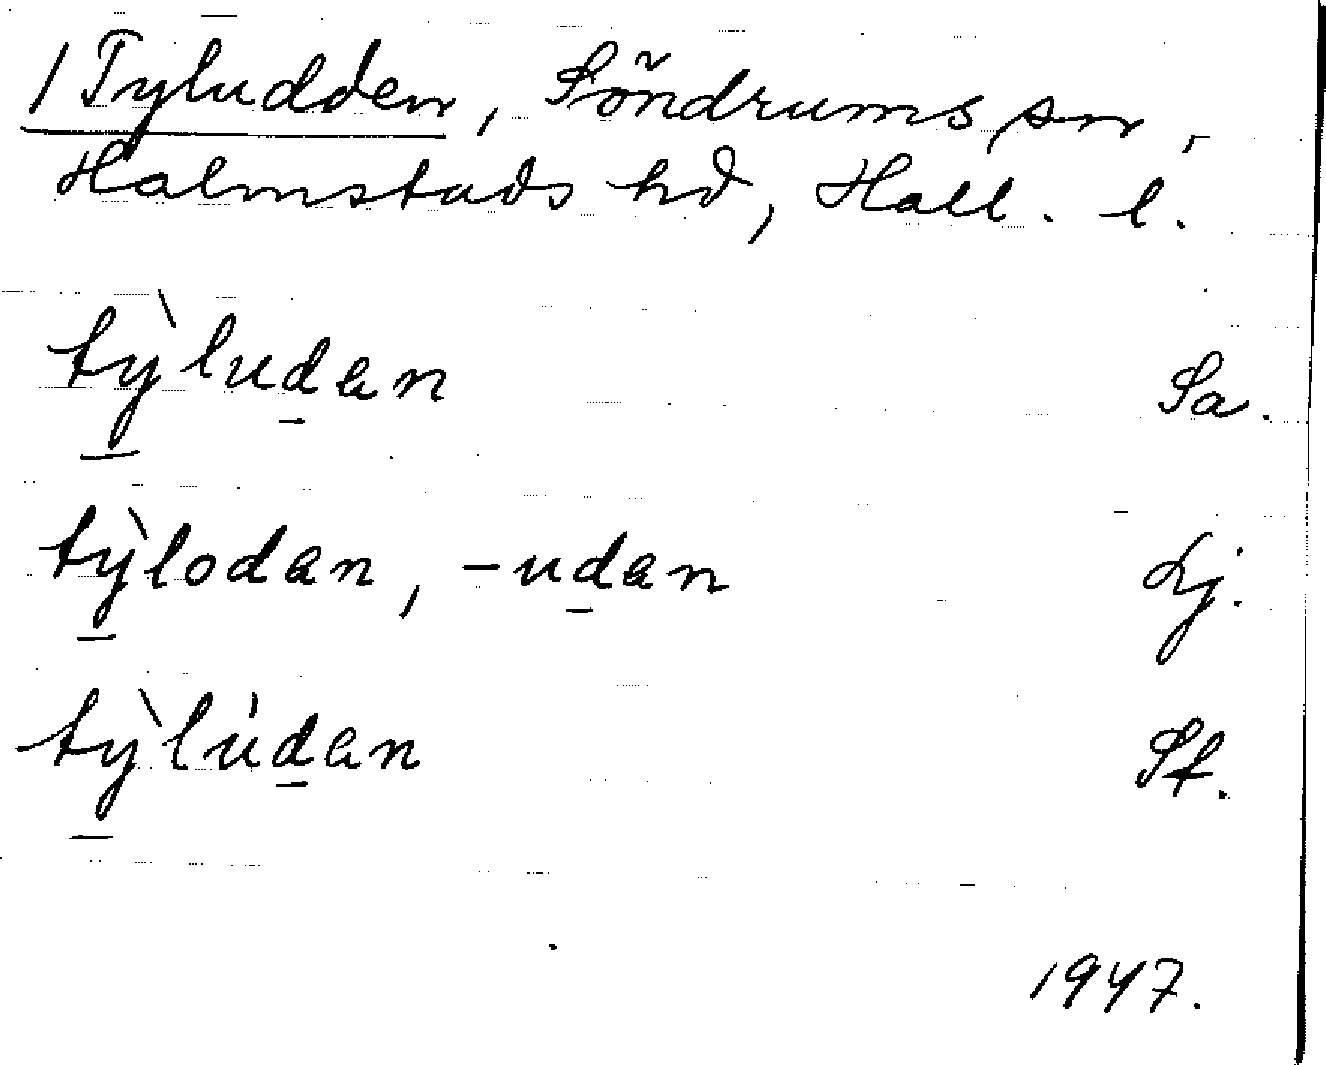 / Tyludden, Söndrums sn,
Halmstads hd, Hall. l.
tỳludan Sa.
tỳlodan, -udan Lj.
tỳlu̇dan St.
1947.